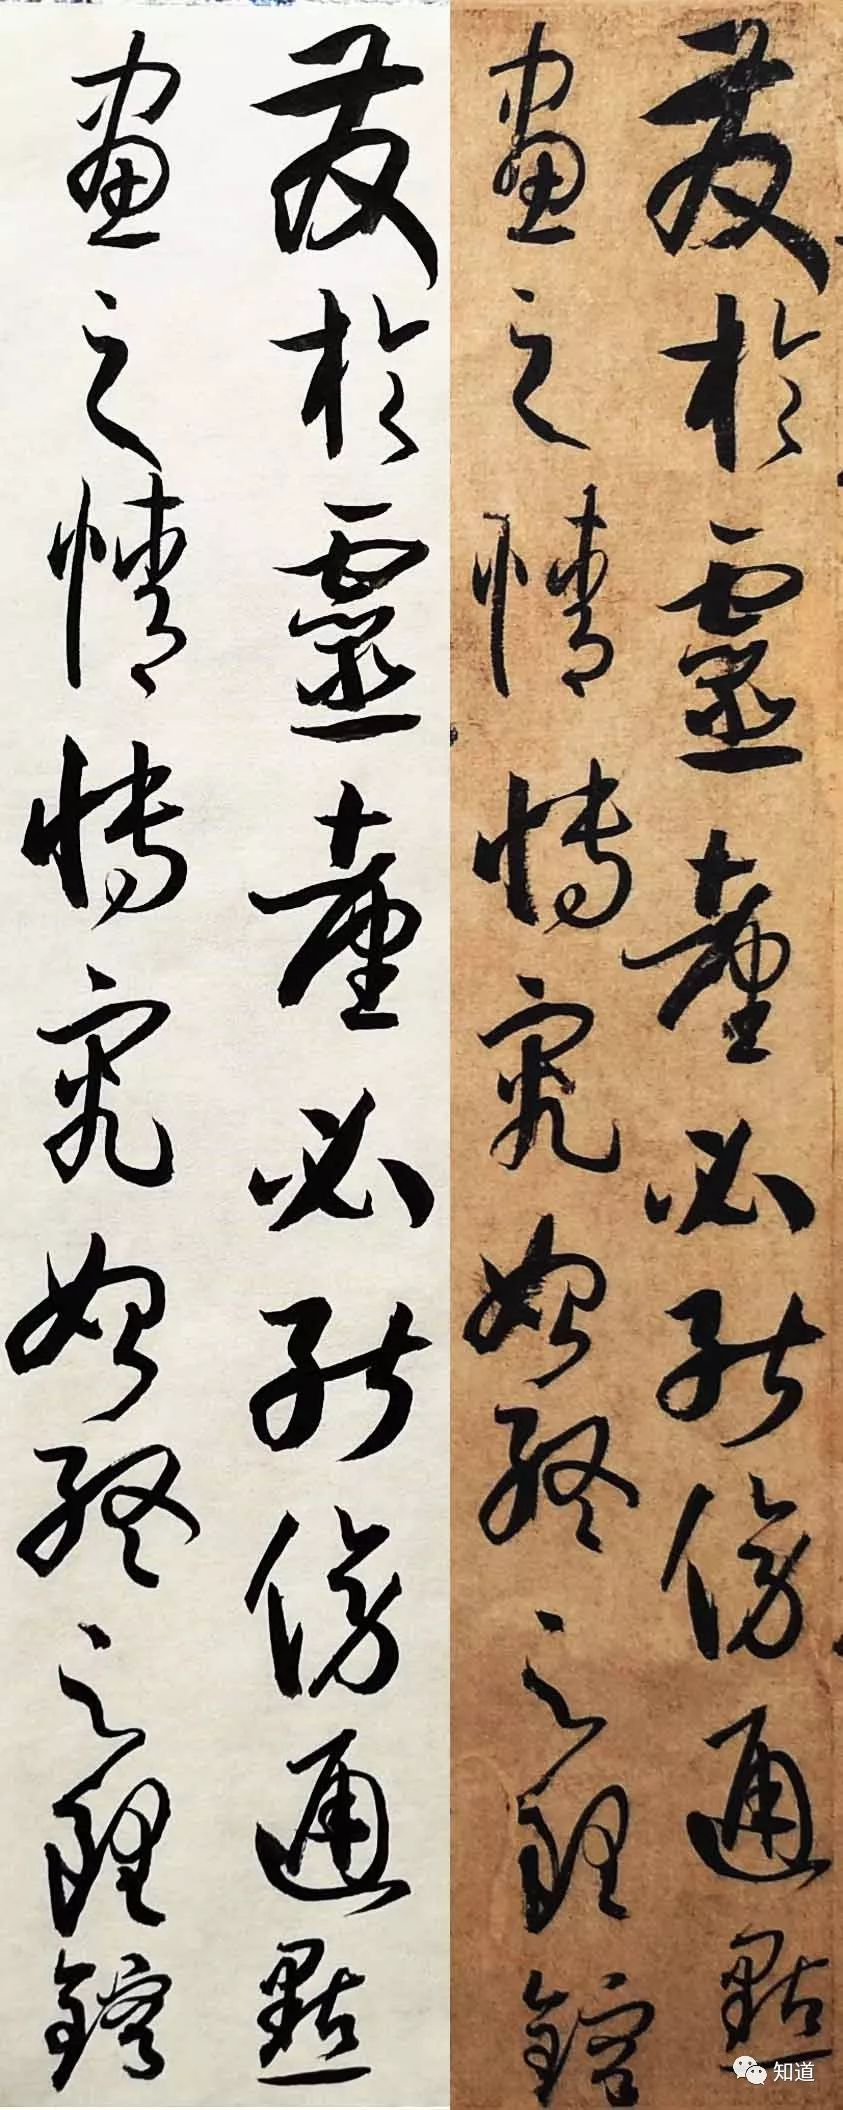 發於靈臺必能傍通點
畫之情博究始終之理鎔
發於靈臺必能傍通點
畫之情博究始終之理鎔
知道